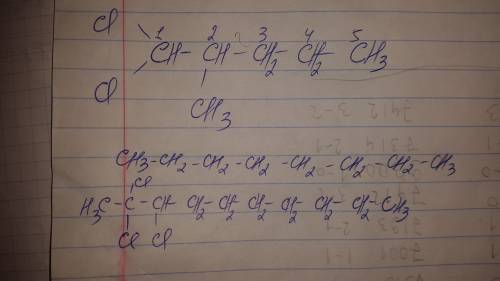 Cl
1 2 3 4 5
CH - CH - CH2 - CH2 - CH3
Cl
CH3
CH3 - CH2 - CH2 - CH2 - CH2 - CH2 - CH2 - CH3
Cl
H3C - C - CH - CH2 - CH2 - CH2 - CH2 - CH2 - CH2 - CH3
Cl Cl